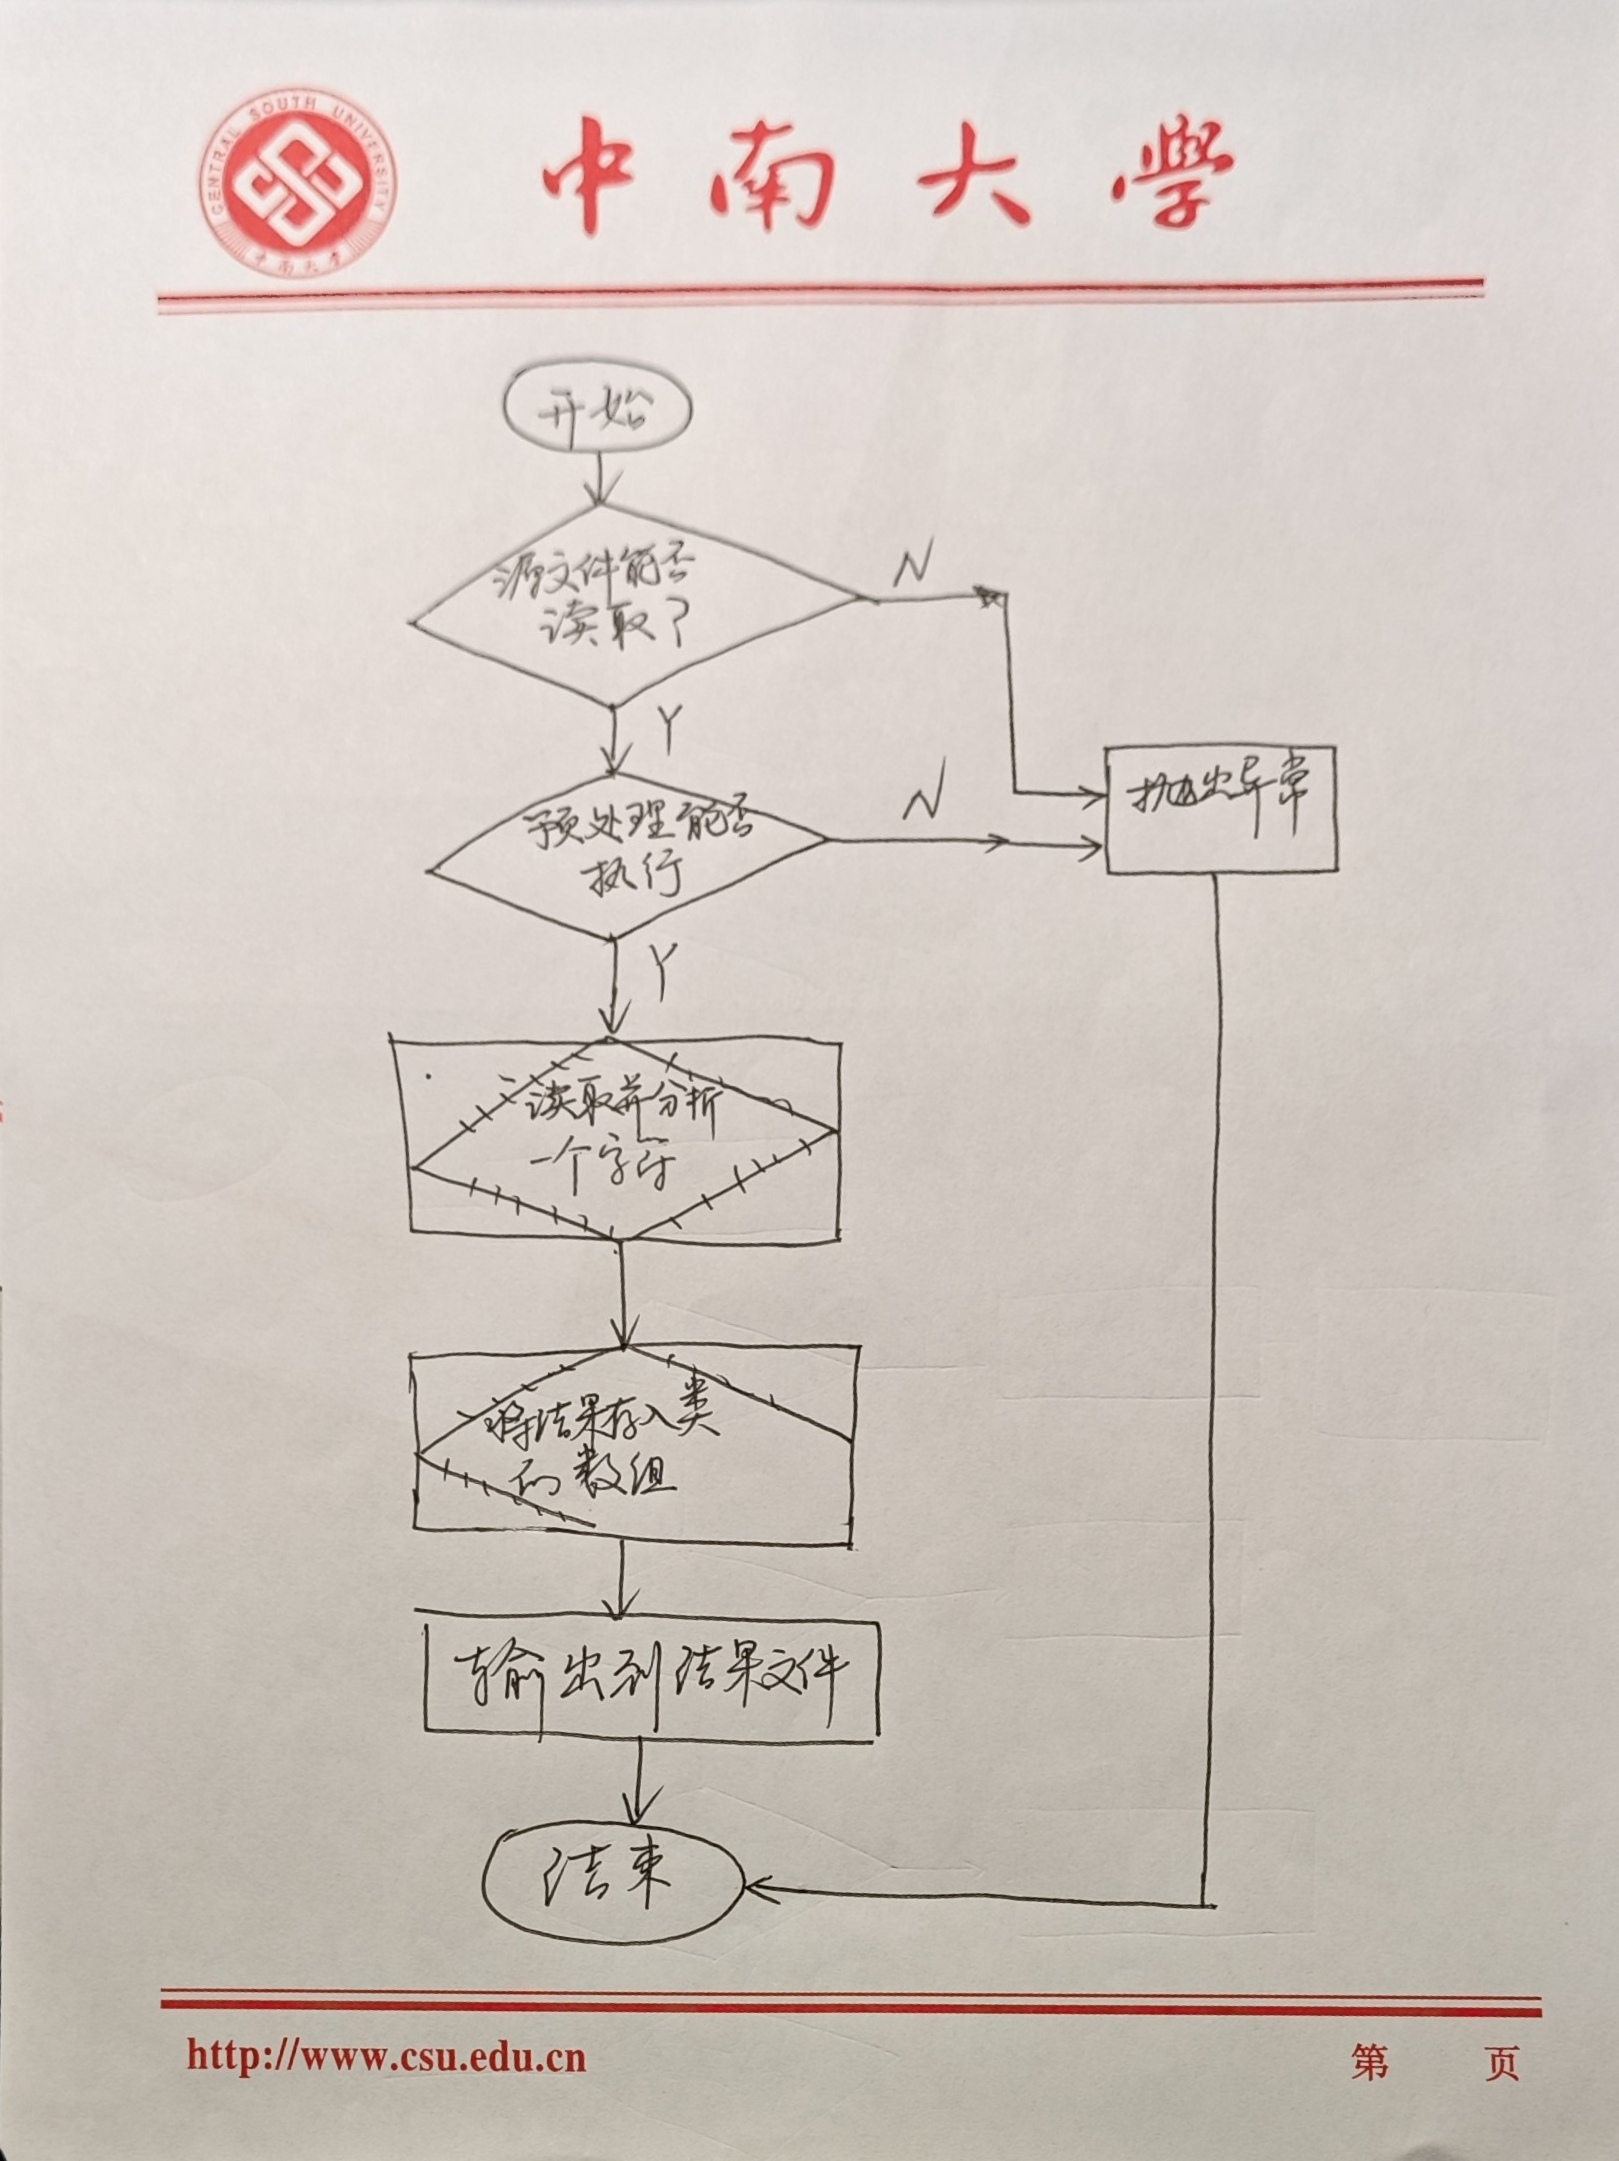 CENTRAL SOUTH UNIVERSITY
中南大学
中南大學
开始
源文件能否
读取?
N
Y
预处理能否
执行
N
抛出异常
Y
读取并分析
一个字符
将结果存入类
的数组
输出到结果文件
结束
http://www.csu.edu.cn
第 页